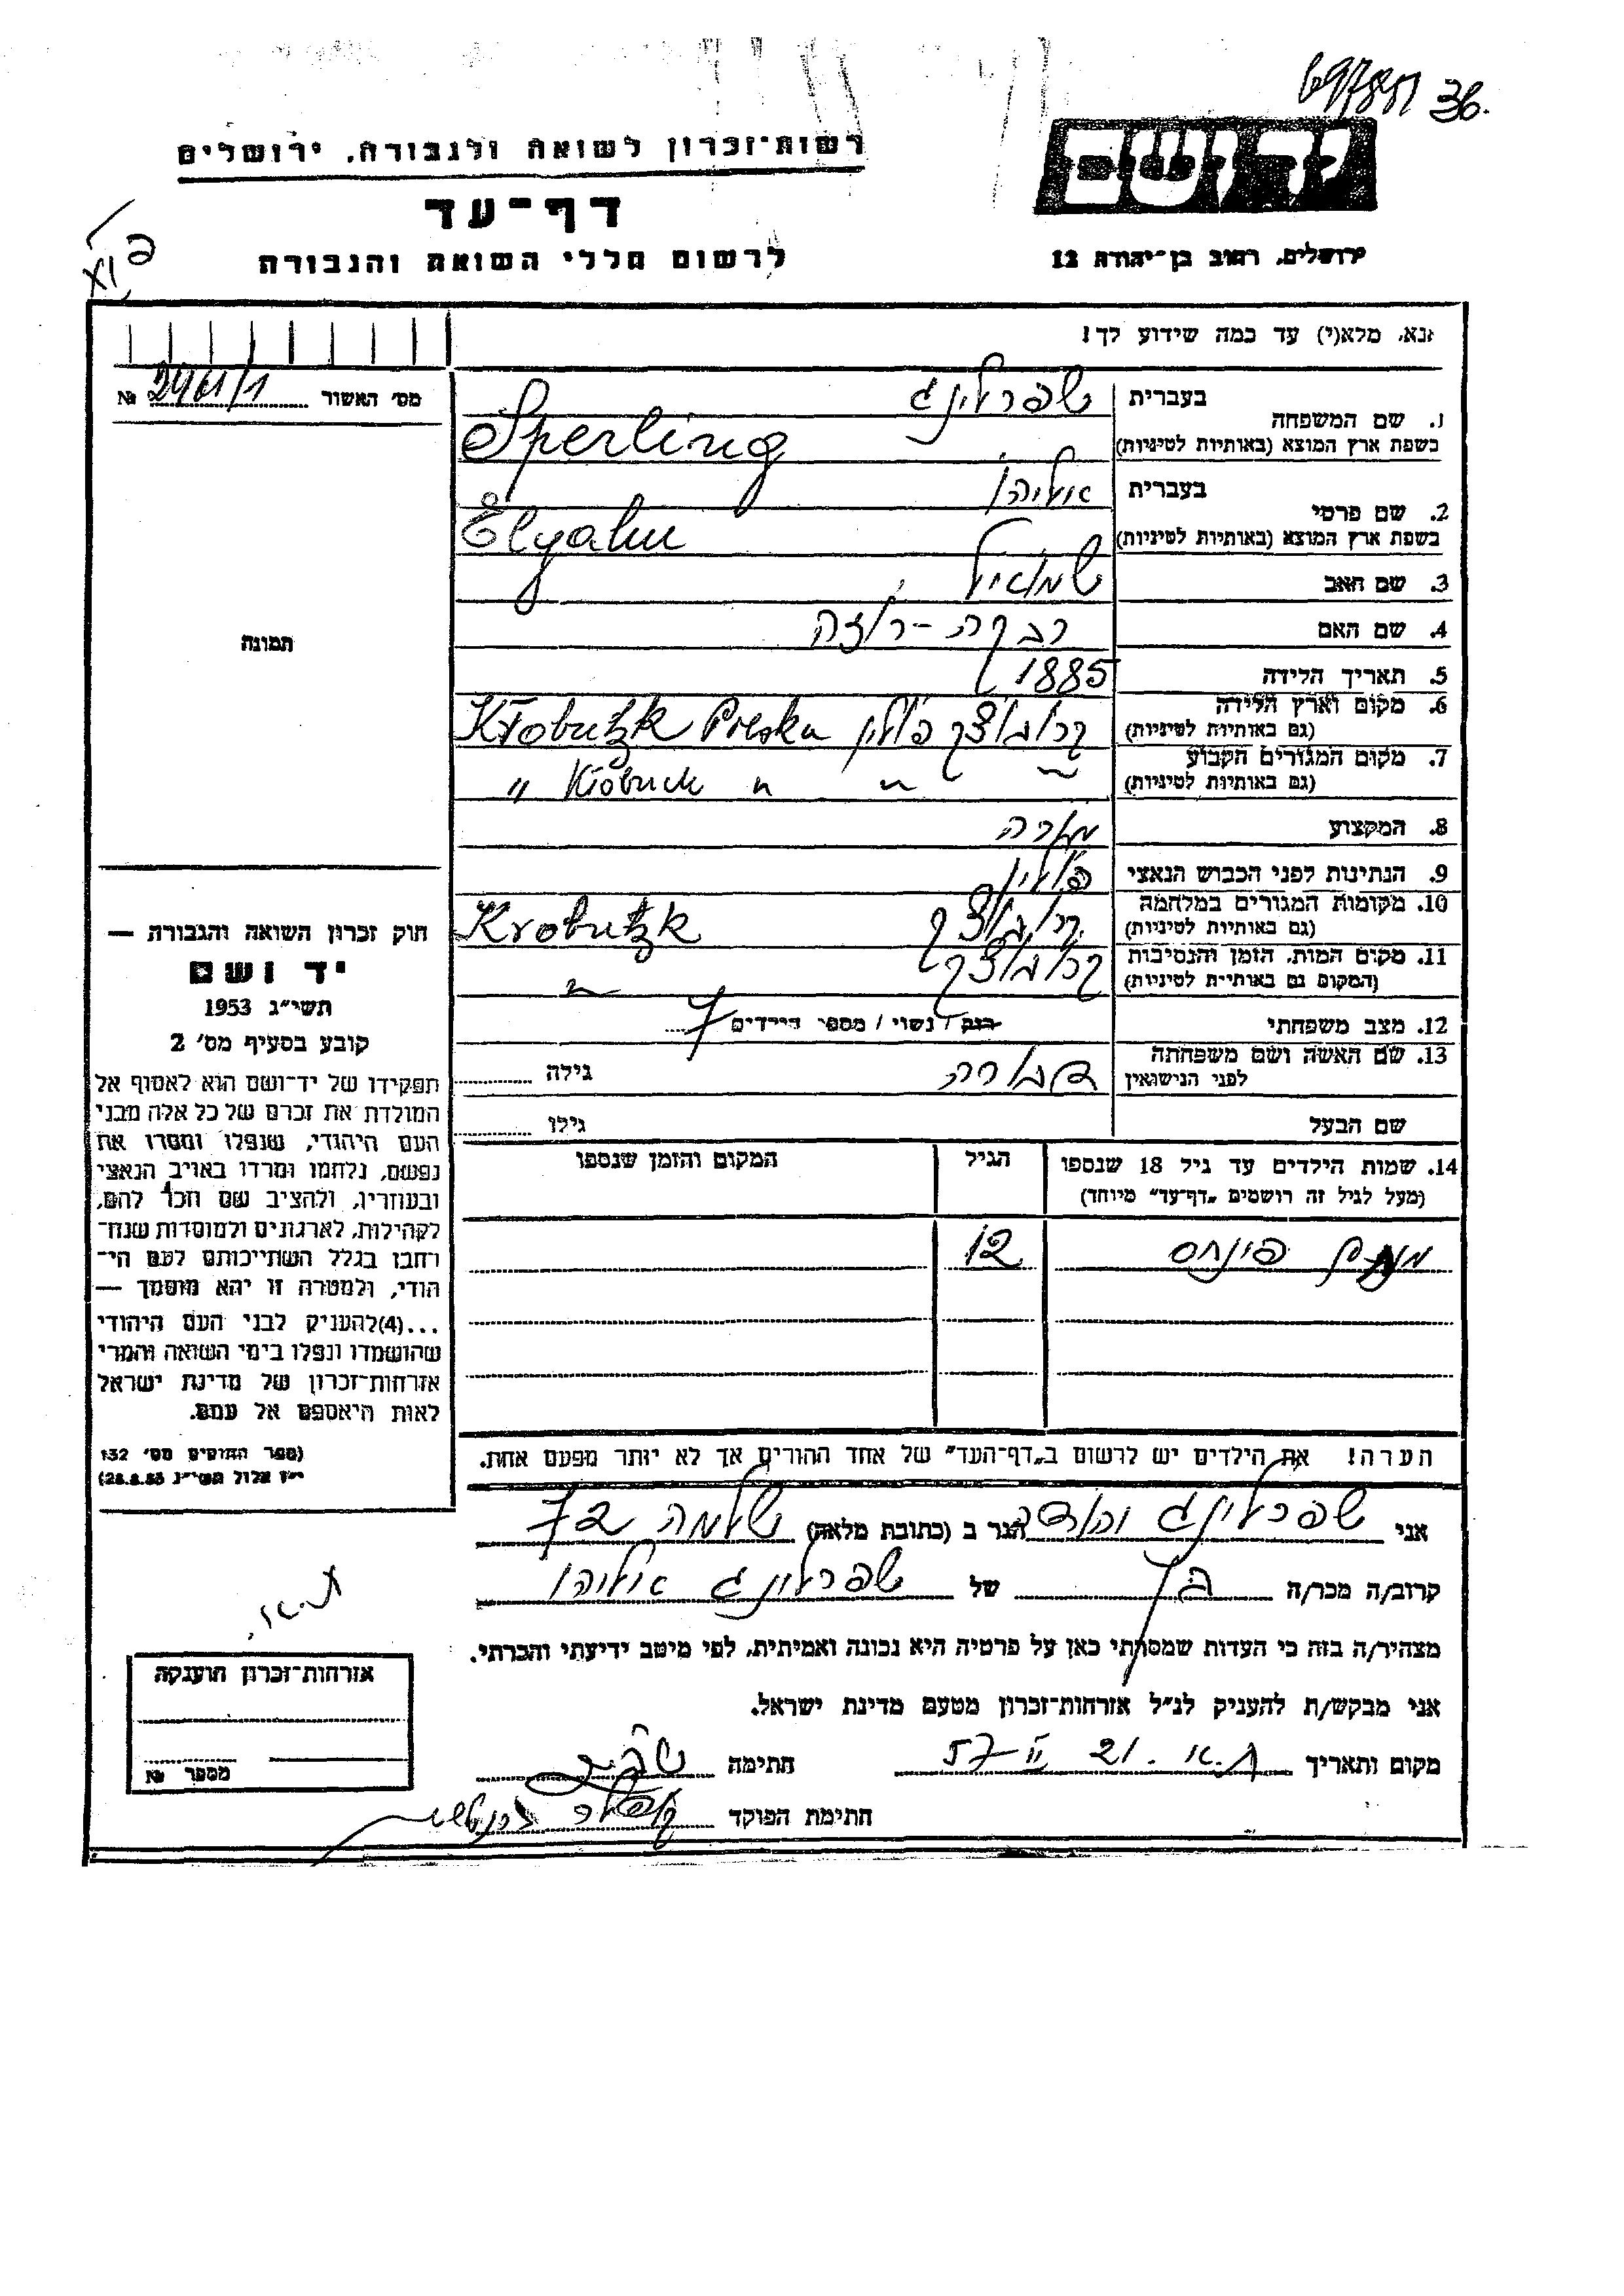 36.
רשות־זכרון לשואה ולגבורה, ירושלים
יד ושם
דף־עד
לרשום חללי השואה והגבורה
ירושלים, רחוב בן־יהודה 12
נא, מלא(י) עד כמה שידוע לך!
מס' האשור № 2461/1
1. שם המשפחה בעברית שפרלינג
בשפת ארץ המוצא (באותיות לטיניות) Sperling
2. שם פרטי בעברית אליהו
בשפת ארץ המוצא (באותיות לטיניות) Elyahu
3. שם האב שמואל
4. שם האם רבקה-רוזה
5. תאריך הלידה 1885
6. מקום וארץ הלידה (גם באותיות לטיניות) קרובוצק פולין Krobutzk Polska
7. מקום המגורים הקבוע (גם באותיות לטיניות) " " " Kłobuck "
8. המקצוע מורה
9. הנתינות לפני הכבוש הנאצי פולין
10. מקומות המגורים במלחמה (גם באותיות לטיניות) קרובוצק Krobutzk
11. מקום המות, הזמן והנסיבות (המקום גם באותיות לטיניות) קרובוצק "
12. מצב משפחתי רווק / נשוי / מספר הילדים 7
13. שם האשה ושם משפחתה לפני הנישואין דבורה גילה
שם הבעל גילו
14. שמות הילדים עד גיל 18 שנספו (מעל לגיל זה רושמים „דף־עד" מיוחד) הגיל המקום והזמן שנספו
פינחס 12
הערה! את הילדים יש לרשום ב„דף־העד" של אחד ההורים אך לא יותר מפעם אחת.
תמונה
חוק זכרון השואה והגבורה —
יד ושם
תשי"ג 1953
קובע בסעיף מס' 2
תפקידו של יד־ושם הוא לאסוף אל
המולדת את זכרם של כל אלה מבני
העם היהודי, שנפלו ומסרו את
נפשם, נלחמו ומרדו באויב הנאצי
ובעוזריו, ולהציב שם וזכר להם,
לקהילות, לארגונים ולמוסדות שנח־
רבו בגלל השתייכותם לעם הי־
הודי, ולמטרה זו יהא מוסמך —
...(4)להעניק לבני העם היהודי
שהושמדו ונפלו בימי השואה והמרי
אזרחות־זכרון של מדינת ישראל
לאות היאספם אל עמם.
(ספר החוקים מס' 132
י"ז אלול תשי"ג 28.8.53)
אני שפרלינג יהודה הגר ב (כתובת מלאה) שלמה 72
קרוב/ה מכר/ה בן של שפרלינג אליהו
מצהיר/ה בזה כי העדות שמסרתי כאן על פרטיה היא נכונה ואמיתית, לפי מיטב ידיעתי והכרתי.
אני מבקש/ת להעניק לנ"ל אזרחות־זכרון מטעם מדינת ישראל.
מקום ותאריך ת.א. 21 II 57 חתימה
חתימת הפוקד
ת.א.
אזרחות־זכרון הוענקה
מספר №